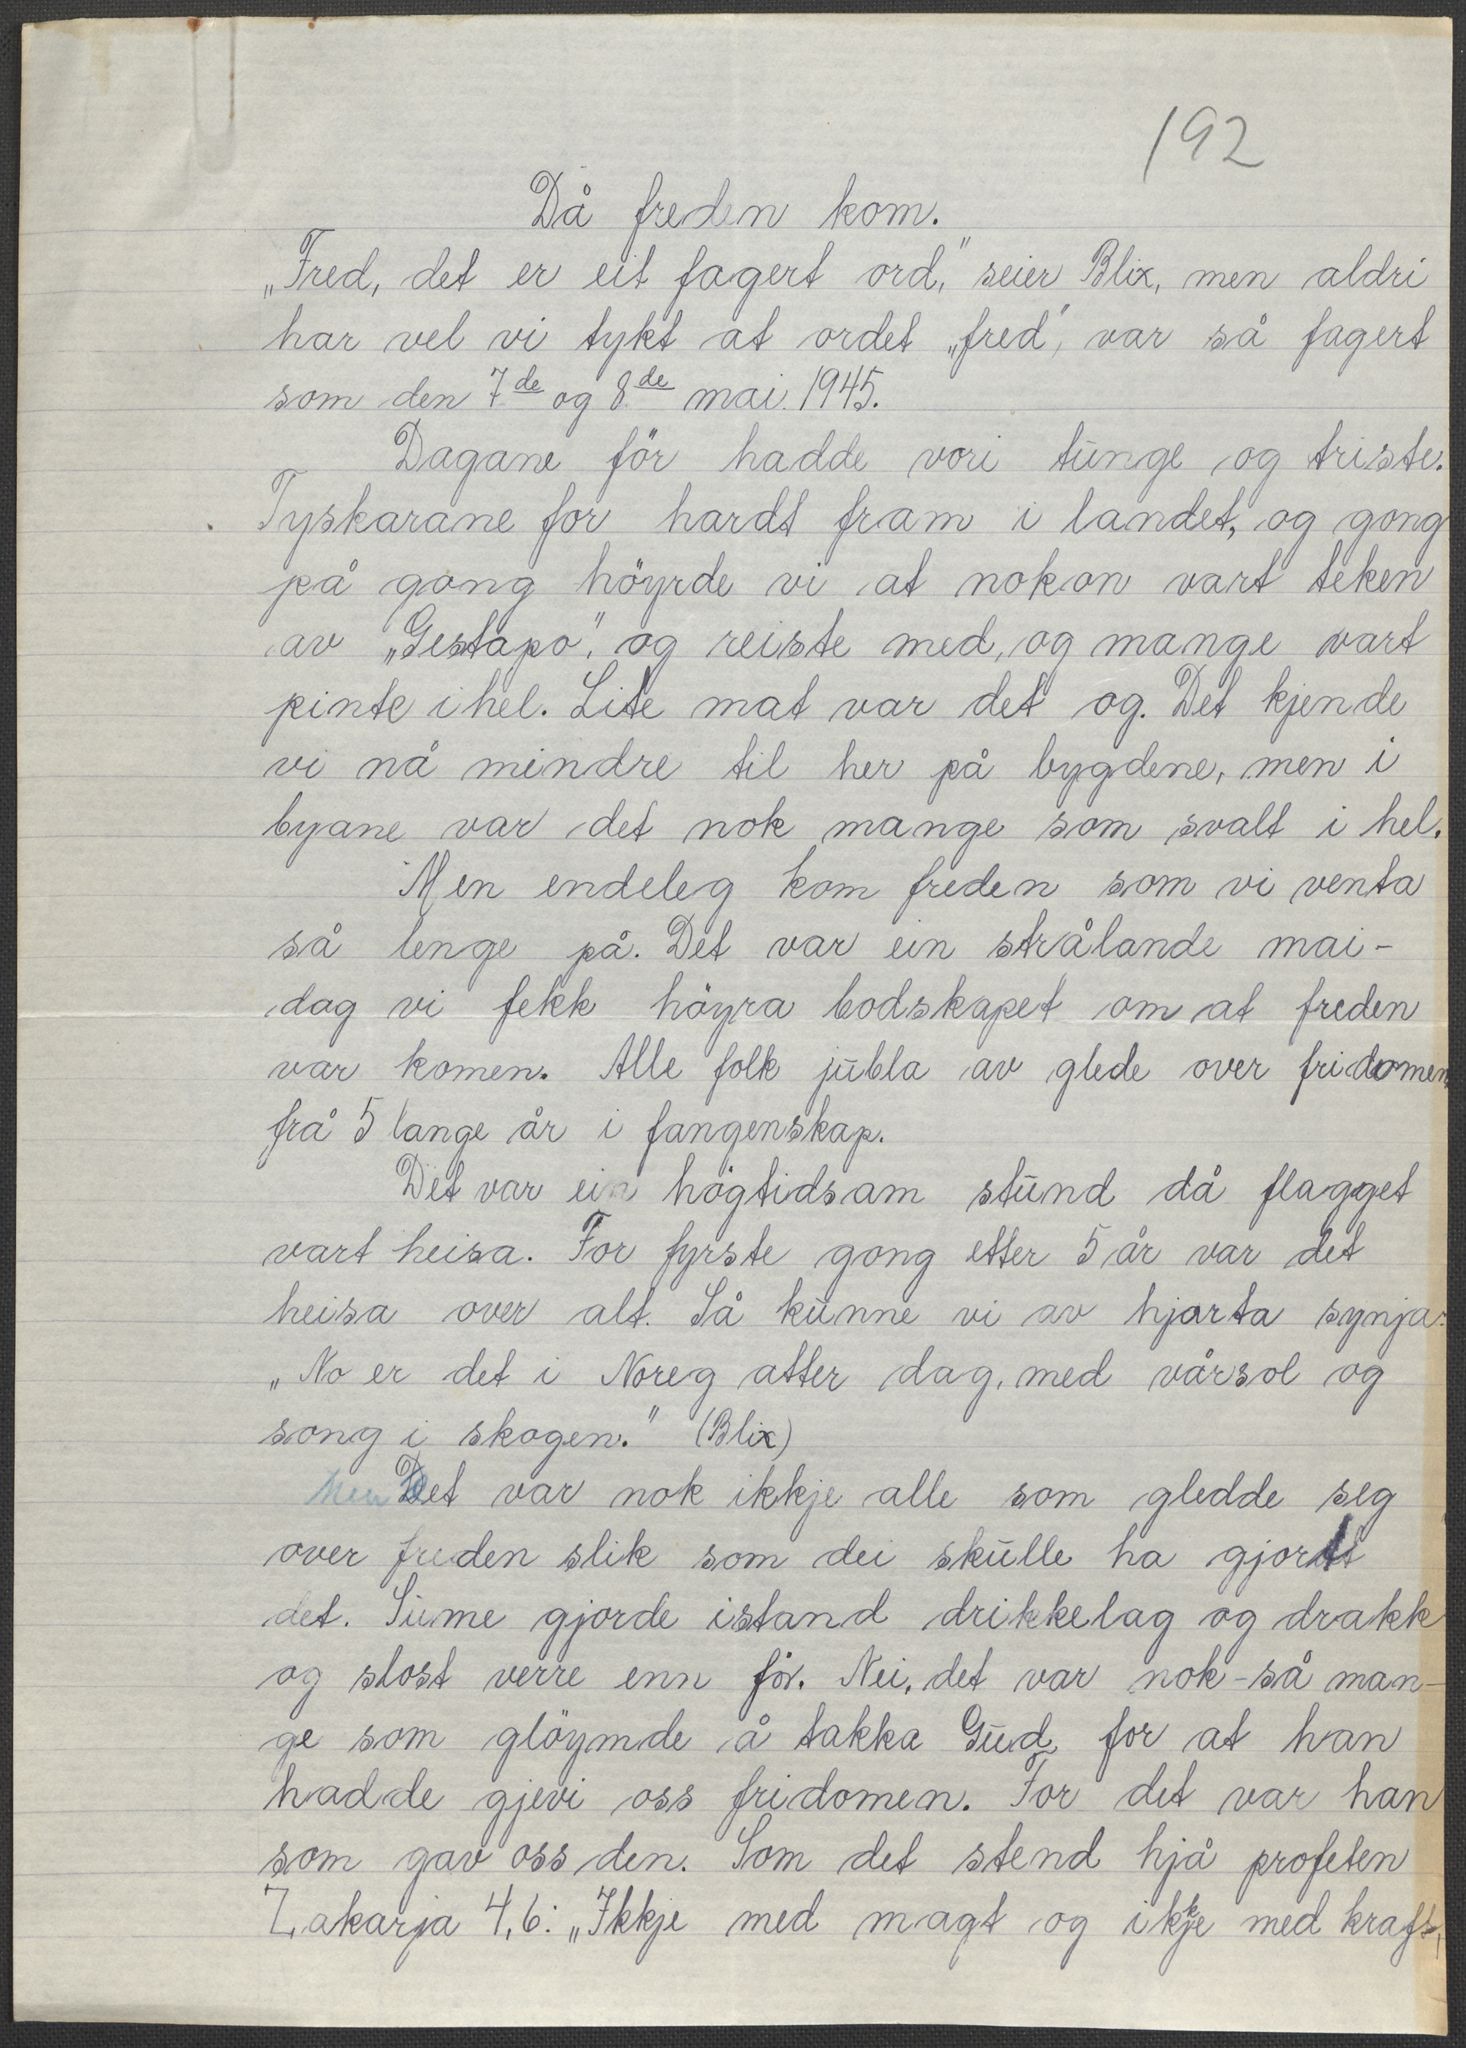 192
Då freden kom.
„Fred, det er eit fagert ord," seier Blix, men aldri
har vel vi tykt at ordet „fred", var så fagert
som den 7de og 8de mai 1945.
Dagane för hadde vori tunge og triste.
Tyskarane for hardt fram i landet, og gong
på gong höyrde vi at nokon vart teken
av „Gestapo", og reiste med, og mange vart
pinte ihel. Lite mat var det og. Det kjende
vi nå mindre til her på bygdene, men i
byane var det nok mange som svalt i hel.
Men endeleg kom freden som vi venta
så lenge på. Det var ein strålande mai-
dag vi fekk höyra bodskapet om at freden
var komen. Alle folk jubla av glede over fridomen
frå 5 lange år i fangenskap.
Det var ein högtidsam stund då flagget
vart heisa. For fyrste gong etter 5 år var det
heisa over alt. Så kunne vi av hjarta synja:
„No er det i Noreg atter dag, med vårsol og
song i skogen." (Blix)
Men Det var nok ikkje alle som gledde seg
over freden slik som dei skulle ha gjort
det. Sume gjorde istand drikkelag og drakk
og slost verre enn för. Nei, det var nok-så man-
ge som glöymde å takka Gud for at han
hadde gjevi oss fridomen. For det var han
som gav oss den. Som det stend hjå profeten
Zakarja 4,6: „Ikkje med magt og ikkje med kraft,